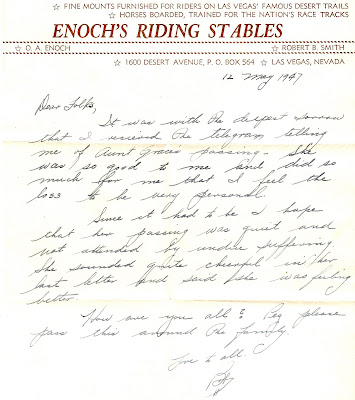 ☆ FINE MOUNTS FURNISHED FOR RIDERS ON LAS VEGAS' FAMOUS DESERT TRAILS
☆ HORSES BOARDED, TRAINED FOR THE NATION'S RACE TRACKS
ENOCH'S RIDING STABLES
☆ O. A. ENOCH ROBERT B. SMITH ☆
☆ 1600 DESERT AVENUE, P. O. BOX 564 ☆ LAS VEGAS, NEVADA
12 May 1947
Dear Folks,
It was with the deepest sorrow
that I received the telegram telling
me of Aunt Graces passing. She
was so good to me and did so
much for me that I feel the
loss to be very personal.
Since it had to be I hope
that her passing was quiet and
not attended by undue suffering.
She sounded quite cheerful in her
last letter and said she was feeling
better.
How are you all? Peg please
pass this around the family.
Love to all.